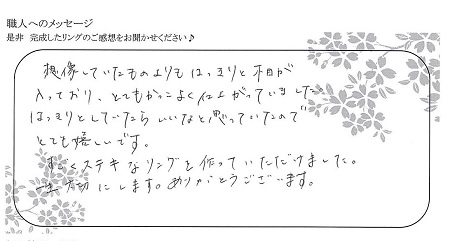 職人へのメッセージ
是非 完成したリングのご感想をお聞かせください♪
想像していたものよりもはっきりと木目が
入っており、とてもかっこよく仕上がっていました。
はっきりとしていたらいいなと思っていたので
とても嬉しいです。
すごくステキなリングを作っていただけました。
一生大切にします。ありがとうございます。